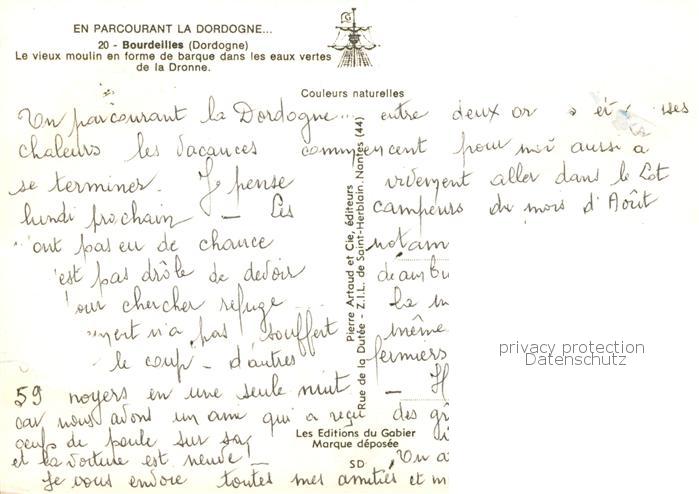 EN PARCOURANT LA DORDOGNE...
20 - Bourdeilles (Dordogne)
Le vieux moulin en forme de barque dans les eaux vertes
de la Dronne.
Couleurs naturelles
En parcourant la Dordogne... entre deux or et ses
chaleurs les vacances commencent pour moi aussi à
se terminer. Je pense aller dans le Lot
lundi prochain - Les campeurs du mois d'Août
ont pas eu de chance notam
'est pas drôle de devoir déambu
our chercher refuge la m
n'a pas souffert même
le coup - d'autres fermiers
59 noyers en une seule nuit - H
car nous avons un ami qui a reçu des gr
oeufs de poule sur sa
et la voiture est neuve! Un a
Je vous envoie toutes mes amitiés et m
Pierre Artaud et Cie, éditeurs
Rue de la Dutée - Z.I.L. de Saint-Herblain. Nantes (44)
Les Editions du Gabier
Marque déposée
SD
privacy protection
Datenschutz